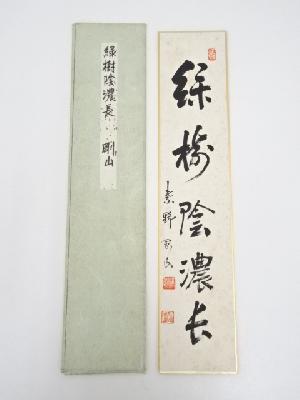 緑樹陰濃長
剛山
緑樹陰濃長